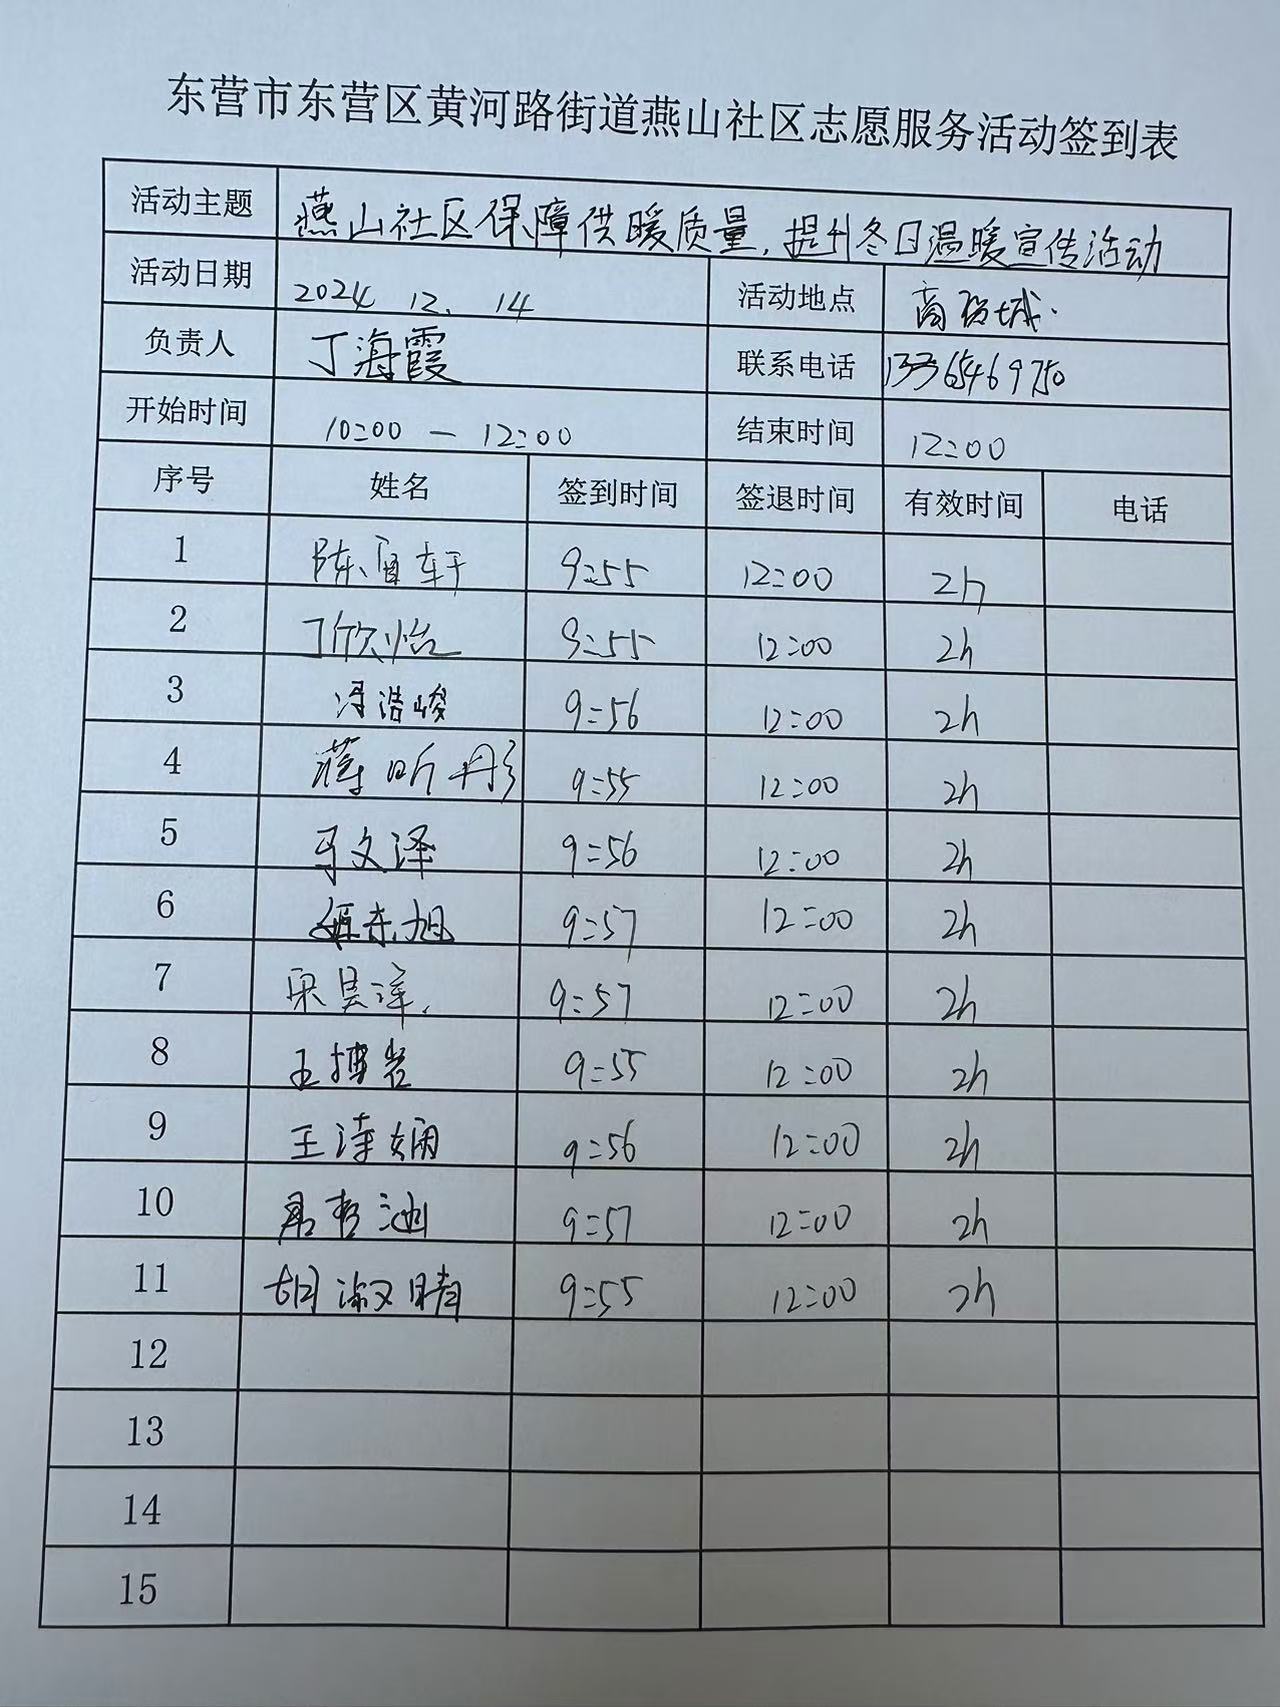 东营市东营区黄河路街道燕山社区志愿服务活动签到表
活动主题 燕山社区保障供暖质量,提升冬日温暖宣传活动
活动日期 2024 12、14 活动地点 商贸城.
负责人 丁海霞 联系电话 13365469750
开始时间 10:00 — 12:00 结束时间 12:00
序号 姓名 签到时间 签退时间 有效时间 电话
1 陈宥轩 9:55 12:00 2h
2 丁欣怡 9:55 12:00 2h
3 浩峻 9:56 12:00 2h
4 蒋昕彤 9:55 12:00 2h
5 马文泽 9:56 12:00 2h
6 东旭 9:57 12:00 2h
7 9:57 12:00 2h
8 王博岩 9:55 12:00 2h
9 王诗娴 9:56 12:00 2h
10 9:57 12:00 2h
11 胡淑晴 9:55 12:00 2h
12
13
14
15